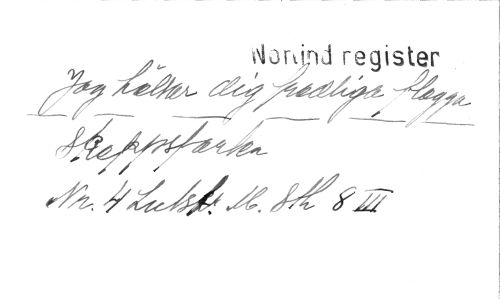 Norlind register
Jag hälsar dig fredliga flagga
Skeppsflarka
Nr. 4 Lutsk. M. Sth 8 III